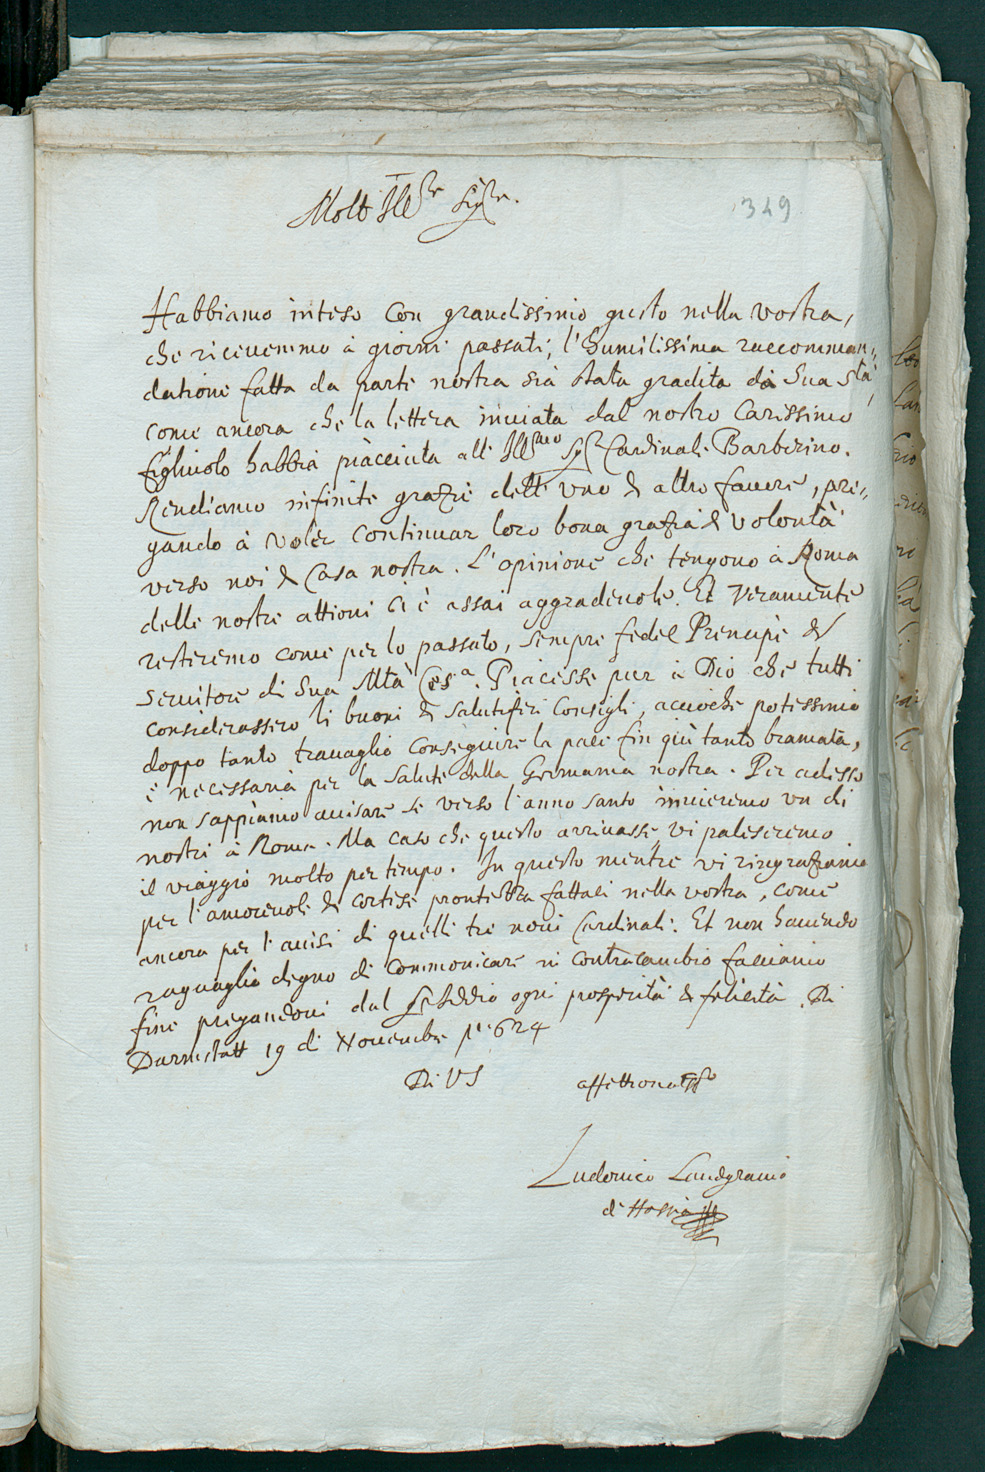 349
Molto Ill^re Sig^re.
Habbiamo inteso con grandissimo gusto nella vostra,
che riceuemmo à giorni passati, l'humilissima raccomman=
datione fatta da parte nostra sià stata gradita da Sua S^tà,
come ancora che la lettera inuiata dal nostro Carissimo
figliuolo habbia piàcciuta all' Ill^mo S^r Cardinale Barberino.
Rendiamo infinite grazie dell' uno & altro fauore, pre=
gando à voler continuar loro bona grazia & volontà
verso noi & Casa nostra. L'opinione che tengono à Roma
delle nostre attioni ci è assai aggradeuole. Et veramente
resteremo come per lo passato, sempre fedel Prencipe &
seruitore di Sua Mtà Ces^a. Piacesse pur à Dio che tutti
considerassero li buoni & salutiferi Consigli, acciochè potessimo
doppo tanto trauaglio conseguire la pace fin quì tanto bramata,
è necessaria per la salute della Germania nostra. Per adesso
non sappiamo auisare se verso l'anno santo inuieremo un di
nostri à Roma. Ma caso che questo arriuasse, vi paleseremo
il viaggio molto per tempo. In questo mentre vi ringraziamo
per l'amoreuole & cortese prontezza fattaci nella vostra, come
ancora per l'auisi di quelli tre noui Cardinali. Et non hauendo
raguaglio degno di commonicare in contracambio facciamo
fine pregandoui dal S^r Iddio ogni prosperità & felicità. Di
Darmstatt 19 di Nouembre 1624
Di VS affettionatss^o
Ludouico Landgrauio
di Hassia